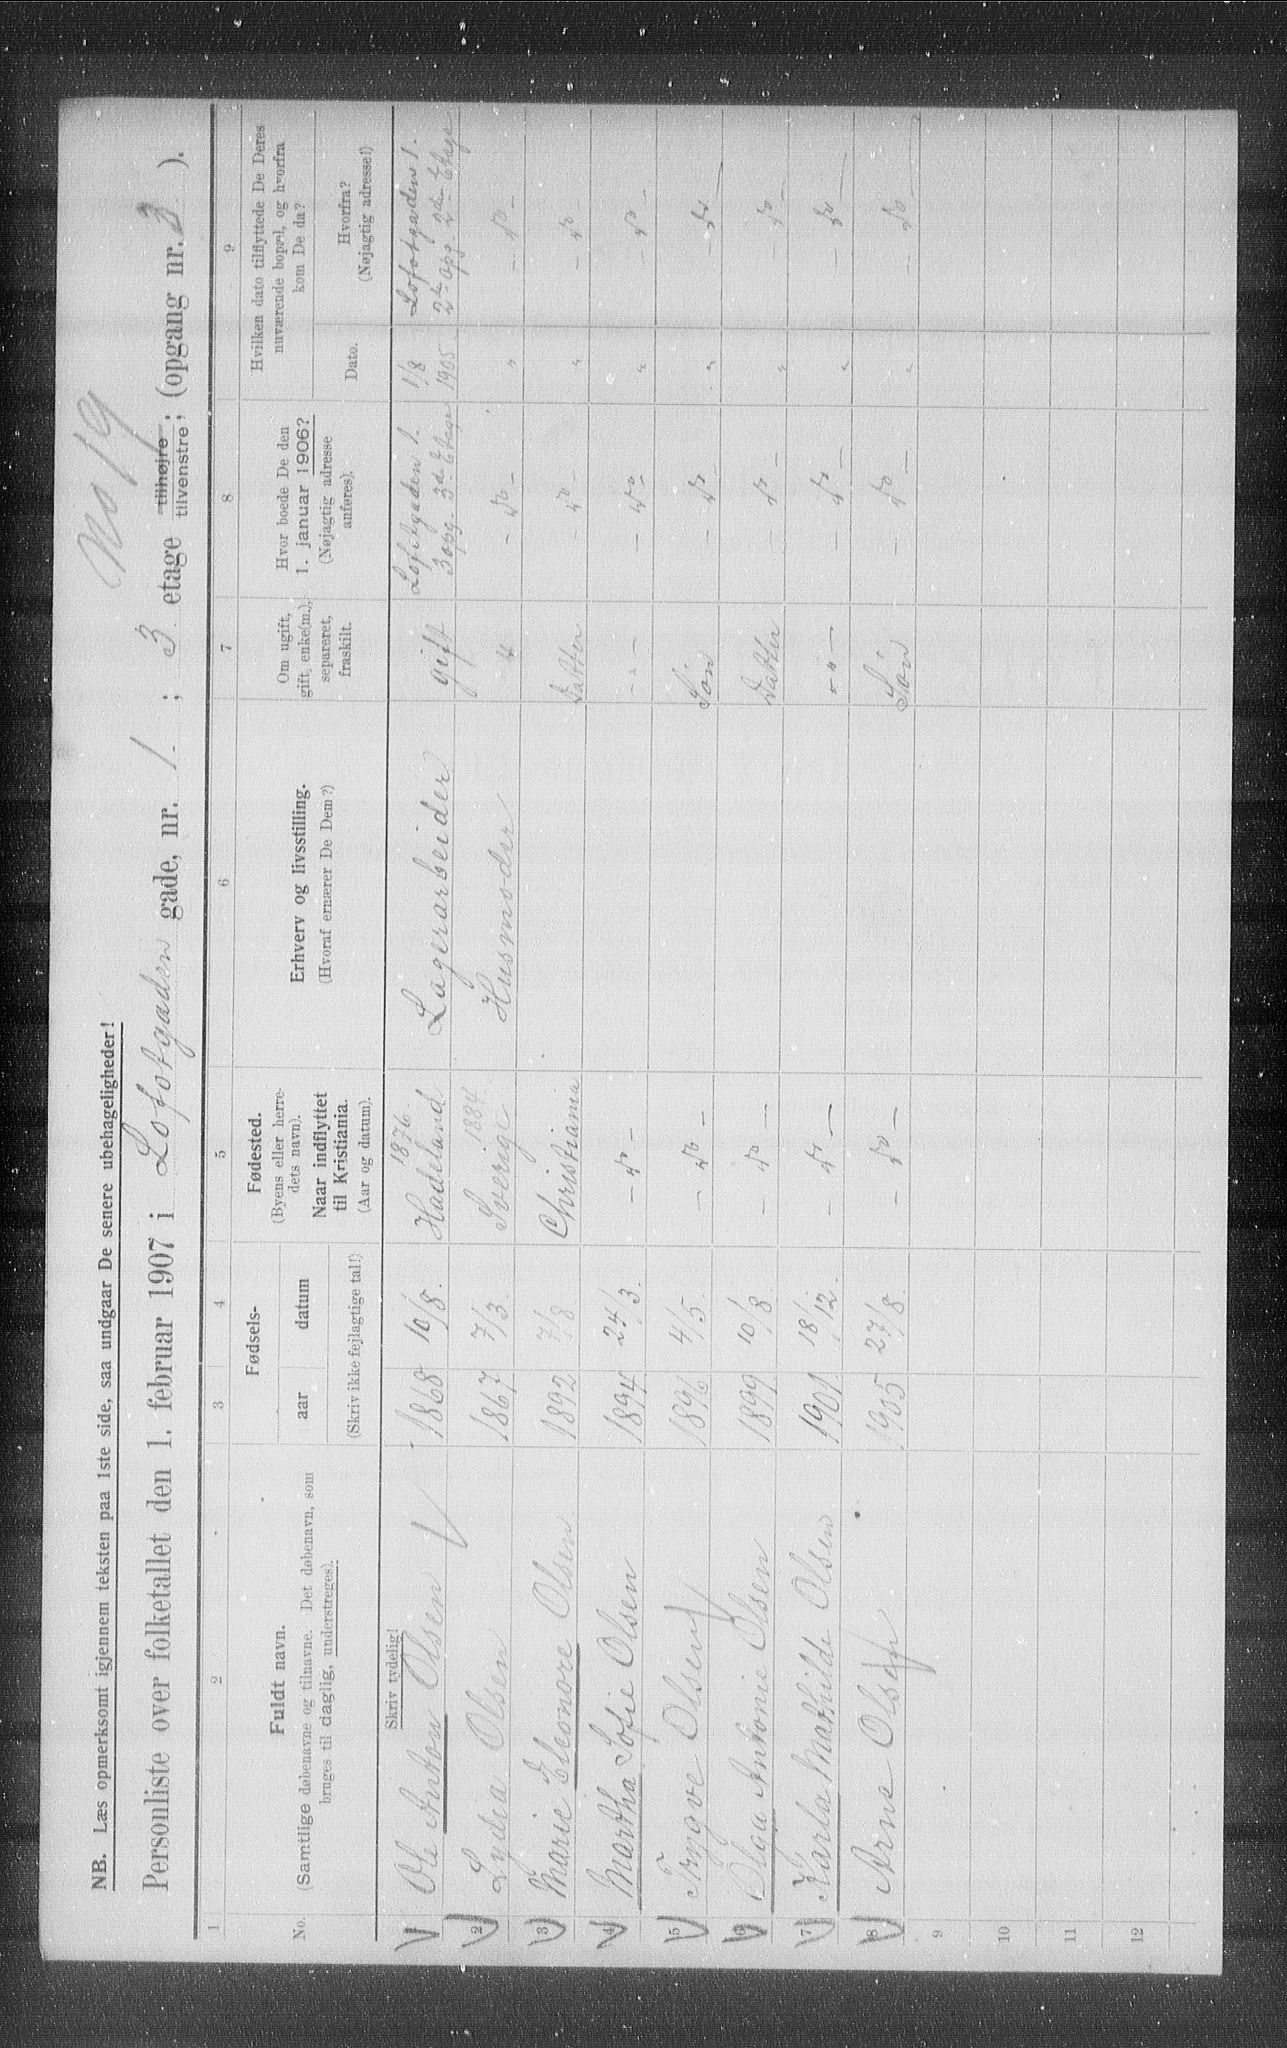 No 19
NB. Læs opmerksomt igjennem teksten paa 1ste side, saa undgaar De senere ubehageligheder!
Personliste over folketallet den 1. februar 1907 i Lofotgaden gade, nr. 1. ; 3 etage tilhøjre, tilvenstre; (opgang nr. 3 ).
1 2 3 4 5 6 7 8 9
No. Fuldt navn. (Samtlige døbenavne og tilnavne. Det døbenavn, som bruges til daglig, understreges). Skriv tydelig!
Fødsels- aar datum (Skriv ikke fejlagtige tal!)
Fødested. (Byens eller herredets navn). Naar indflyttet til Kristiania. (Aar og datum).
Erhverv og livsstilling. (Hvoraf ernærer De Dem?)
Om ugift, gift, enke(m.), separeret, fraskilt.
Hvor boede De den 1. januar 1906? (Nøjagtig adresse anføres).
Hvilken dato tilflyttede De Deres nuværende bopæl, og hvorfra kom De da? Dato. Hvorfra? (Nøjagtig adresse!)
1 Ole Anton Olsen 1868 10/8. Hadeland 1876 Lagerarbeider gift Lofotgaden 1. 3 opg. 3de Etage 1/8 1905. Lofotgaden 1. 2den opg. 2den Etage
2 Lydia Olsen 1867 7/3. Sverige 1884 Husmoder " - do - " - do -
3 Marie Eleonore Olsen 1892 7/8. Christiania Datter - do - " - do -
4 Martha Sofie Olsen 1894 24/3. - do - - " - - do - " - do -
5 Trygve Olsen 1896 4/5. - do - Søn - do - " - do -
6 Olga Antonie Olsen 1899 10/8. - do - Datter - do - " - do -
7 Karla Mathilde Olsen 1901 18/12. - do - - " - - do - " - do -
8 Arne Olsen 1905 27/8. - do - Søn - do - " - do -
9
10
11
12